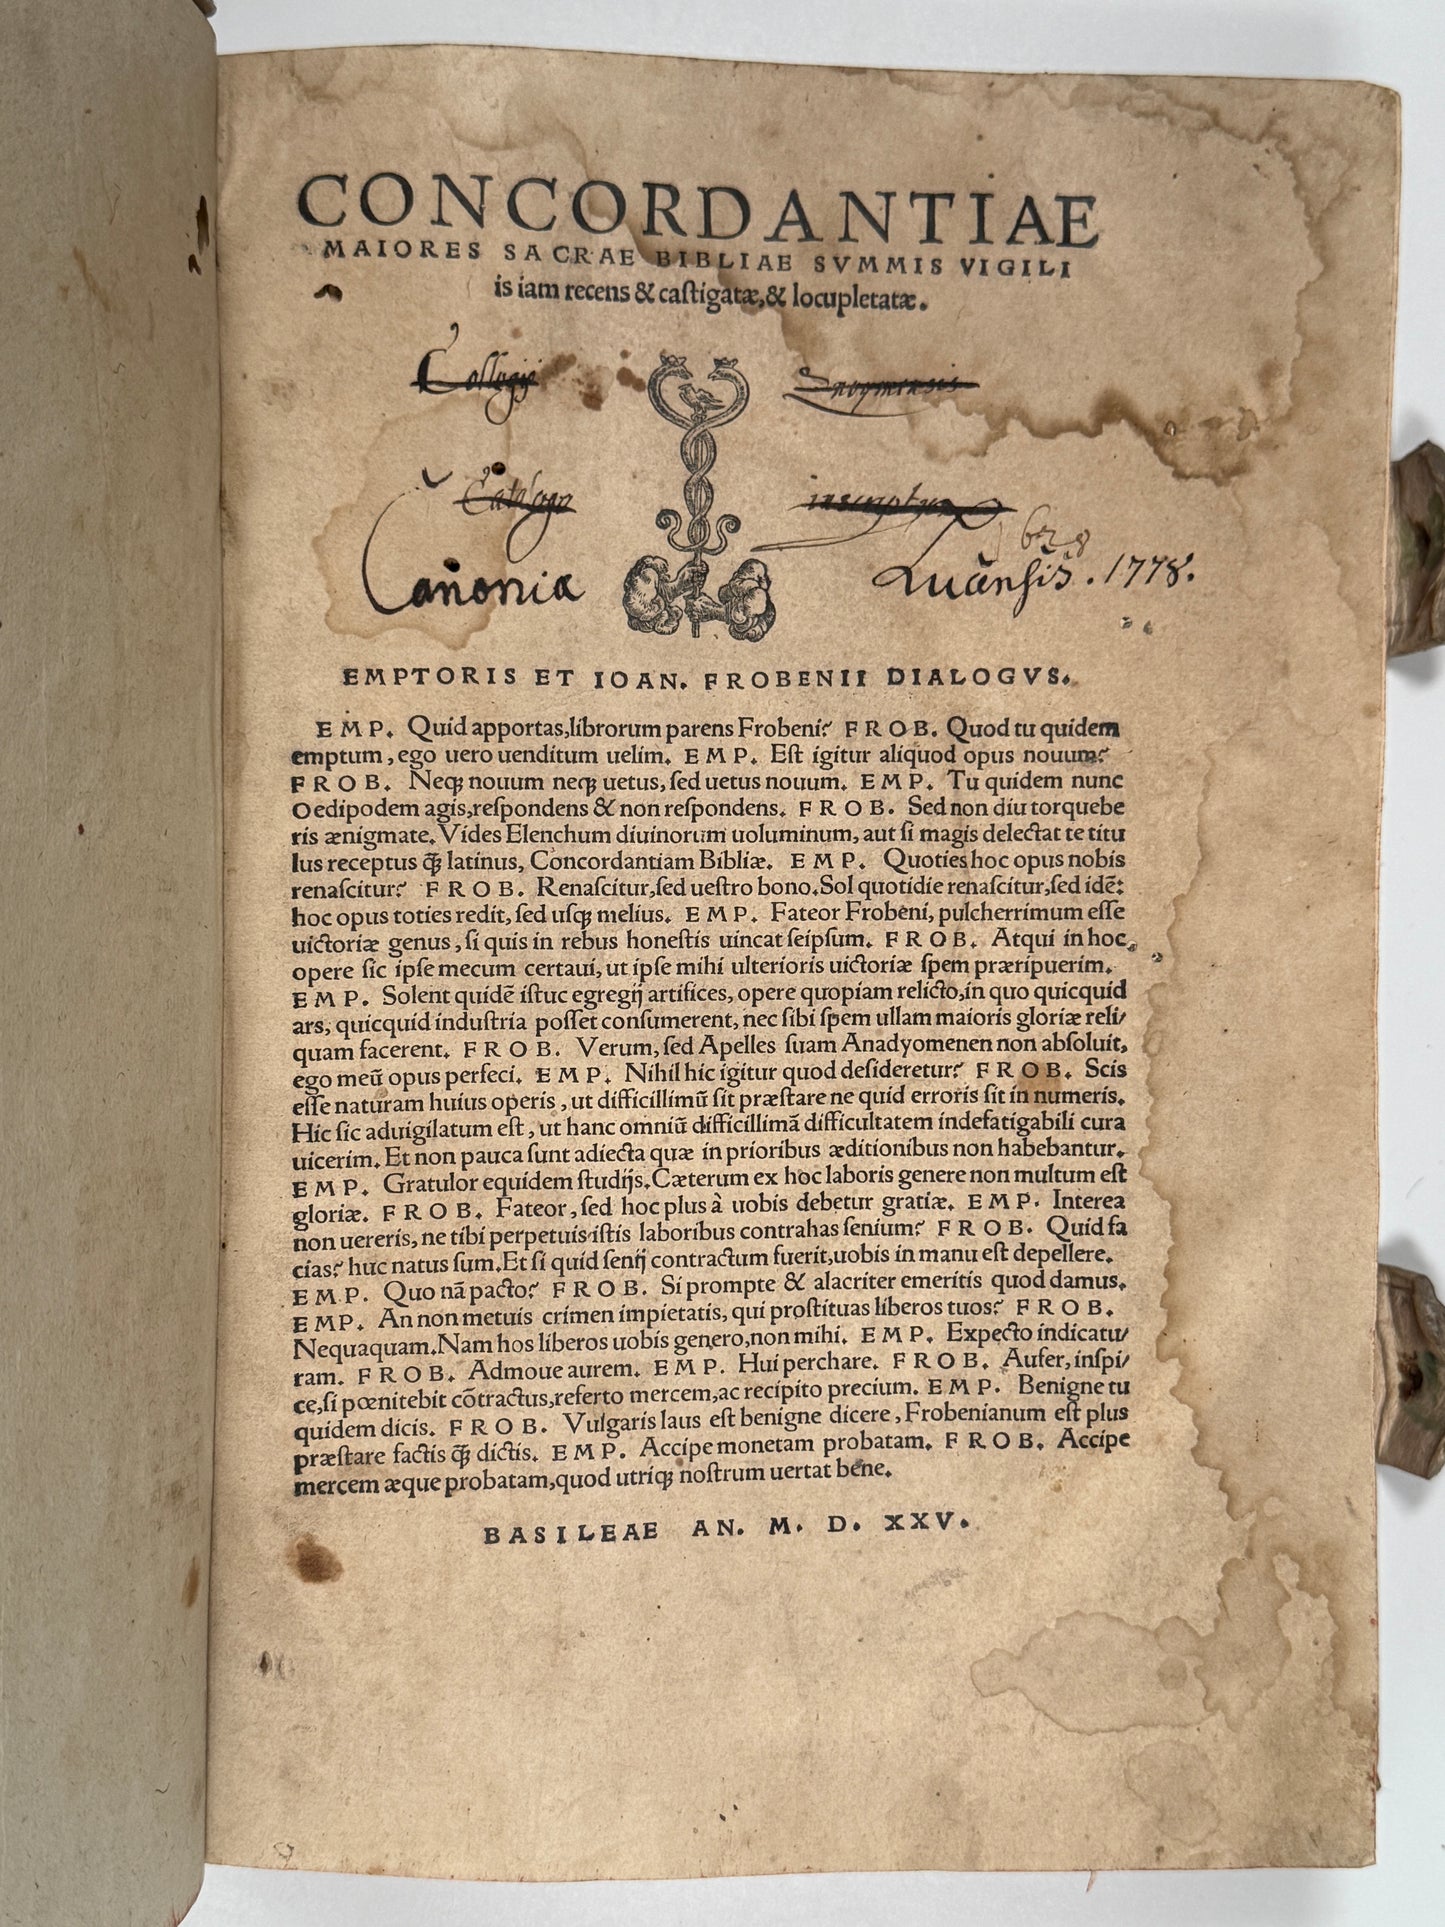 CONCORDANTIAE
MAIORES SACRAE BIBLIAE SVMMIS VIGILI
is iam recens & castigatæ,& locupletatæ.
Collegij Znoymensis
Catalogo inscriptus
628
Canonia Lucensis. 1778.
EMPTORIS ET IOAN. FROBENII DIALOGVS.
EMP. Quid apportas,librorum parens Frobeni? FROB. Quod tu quidem
emptum, ego uero uenditum uelim. EMP. Est igitur aliquod opus nouum?
FROB. Neqꝫ nouum neqꝫ uetus, sed uetus nouum. EMP. Tu quidem nunc
Oedipodem agis,respondens & non respondens. FROB. Sed non diu torquebe
ris ænigmate. Vides Elenchum diuinorum uoluminum, aut si magis delectat te titu
lus receptus ꝗ̃ latinus, Concordantiam Bibliæ. EMP. Quoties hoc opus nobis
renascitur? FROB. Renascitur,sed uestro bono.Sol quotidie renascitur,sed idē:
hoc opus toties redit, sed usqꝫ melius. EMP. Fateor Frobeni, pulcherrimum esse
uictoriæ genus, si quis in rebus honestis uincat seipsum. FROB. Atqui in hoc
opere sic ipse mecum certaui, ut ipse mihi ulterioris uictoriæ spem præripuerim.
EMP. Solent quidē istuc egregij artifices, opere quopiam relicto,in quo quicquid
ars, quicquid industria posset consumerent, nec sibi spem ullam maioris gloriæ reli/
quam facerent. FROB. Verum, sed Apelles suam Anadyomenen non absoluit,
ego meū opus perfeci. EMP. Nihil hic igitur quod desideretur? FROB. Scis
esse naturam huius operis, ut difficillimū sit præstare ne quid erroris sit in numeris.
Hic sic aduigilatum est, ut hanc omniū difficillimā difficultatem indefatigabili cura
uicerim. Et non pauca sunt adiecta quæ in prioribus æditionibus non habebantur.
EMP. Gratulor equidem studijs.Cæterum ex hoc laboris genere non multum est
gloriæ. FROB. Fateor, sed hoc plus à uobis debetur gratiæ. EMP. Interea
non uereris, ne tibi perpetuis istis laboribus contrahas senium? FROB. Quid fa
cias? huc natus sum.Et si quid senij contractum fuerit,uobis in manu est depellere.
EMP. Quo nā pacto? FROB. Si prompte & alacriter emeritis quod damus.
EMP. An non metuis crimen impietatis, qui prostituas liberos tuos? FROB.
Nequaquam.Nam hos liberos uobis genero,non mihi. EMP. Expecto indicatu/
ram. FROB. Admoue aurem. EMP. Hui perchare. FROB. Aufer, inspi/
ce,si pœnitebit cōtractus,referto mercem,ac recipito precium. EMP. Benigne tu
quidem dicis. FROB. Vulgaris laus est benigne dicere, Frobenianum est plus
præstare factis ꝗ̃ dictis. EMP. Accipe monetam probatam. FROB. Accipe
mercem æque probatam,quod utriqꝫ nostrum uertat bene.
BASILEAE AN. M. D. XXV.